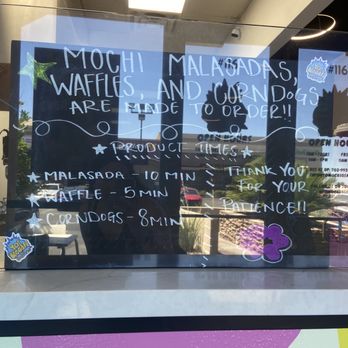 MOCHI MALASADAS,
WAFFLES, AND CORNDOGS
ARE MADE TO ORDER!!
PRODUCT TIMES
MALASADA - 10 MIN
WAFFLE - 5 MIN
CORNDOGS - 8 MIN
THANK YOU
FOR YOUR
PATIENCE!!
#116
OPEN HOU